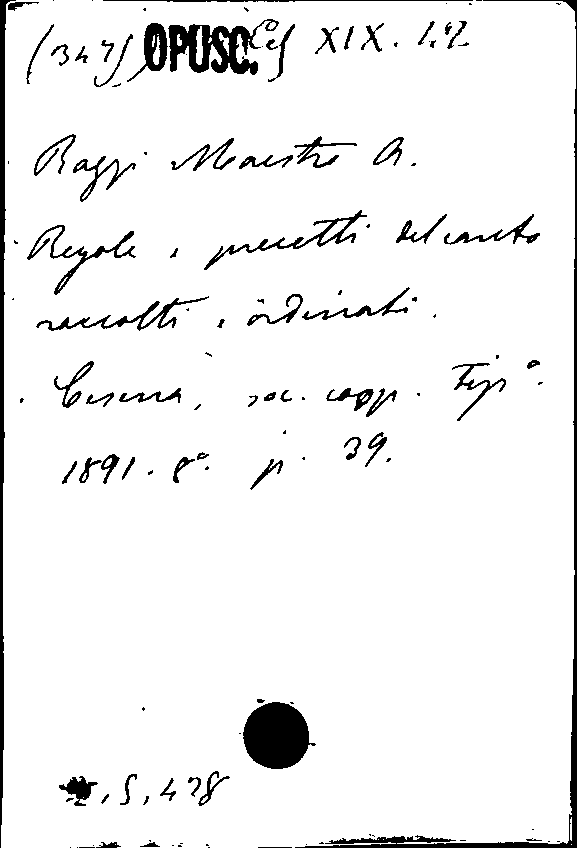 (347) OPUSC. Ces XIX. 1.2
Raggi Maestro A.
Regole e precetti del canto
raccolti e ordinati.
Cesena, soc. coop. Tip.ª
1891. 8º. p. 39.
5, 478